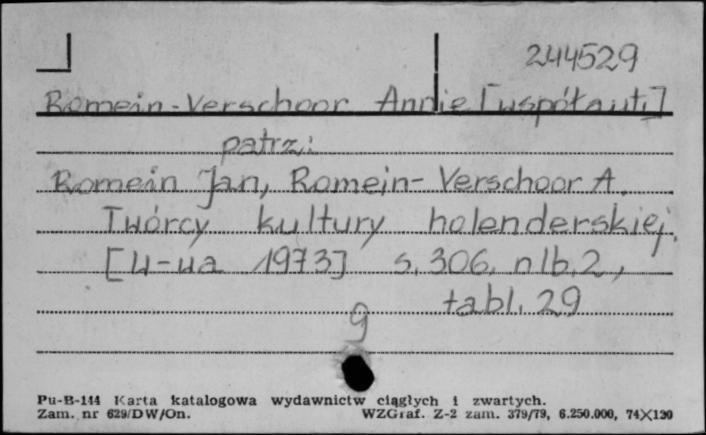 244529
Romein-Verschoor Annie [współaut.]
patrz:
Romein Jan, Romein-Verschoor A.
Twórcy kultury holenderskiej.
[W-wa 1973] s. 306, nlb. 2,
tabl. 29
9
Pu-B-144 Karta katalogowa wydawnictw ciągłych i zwartych.
Zam. nr 629/DW/On. WZGraf. Z-2 zam. 379/79, 6.250.000, 74X120